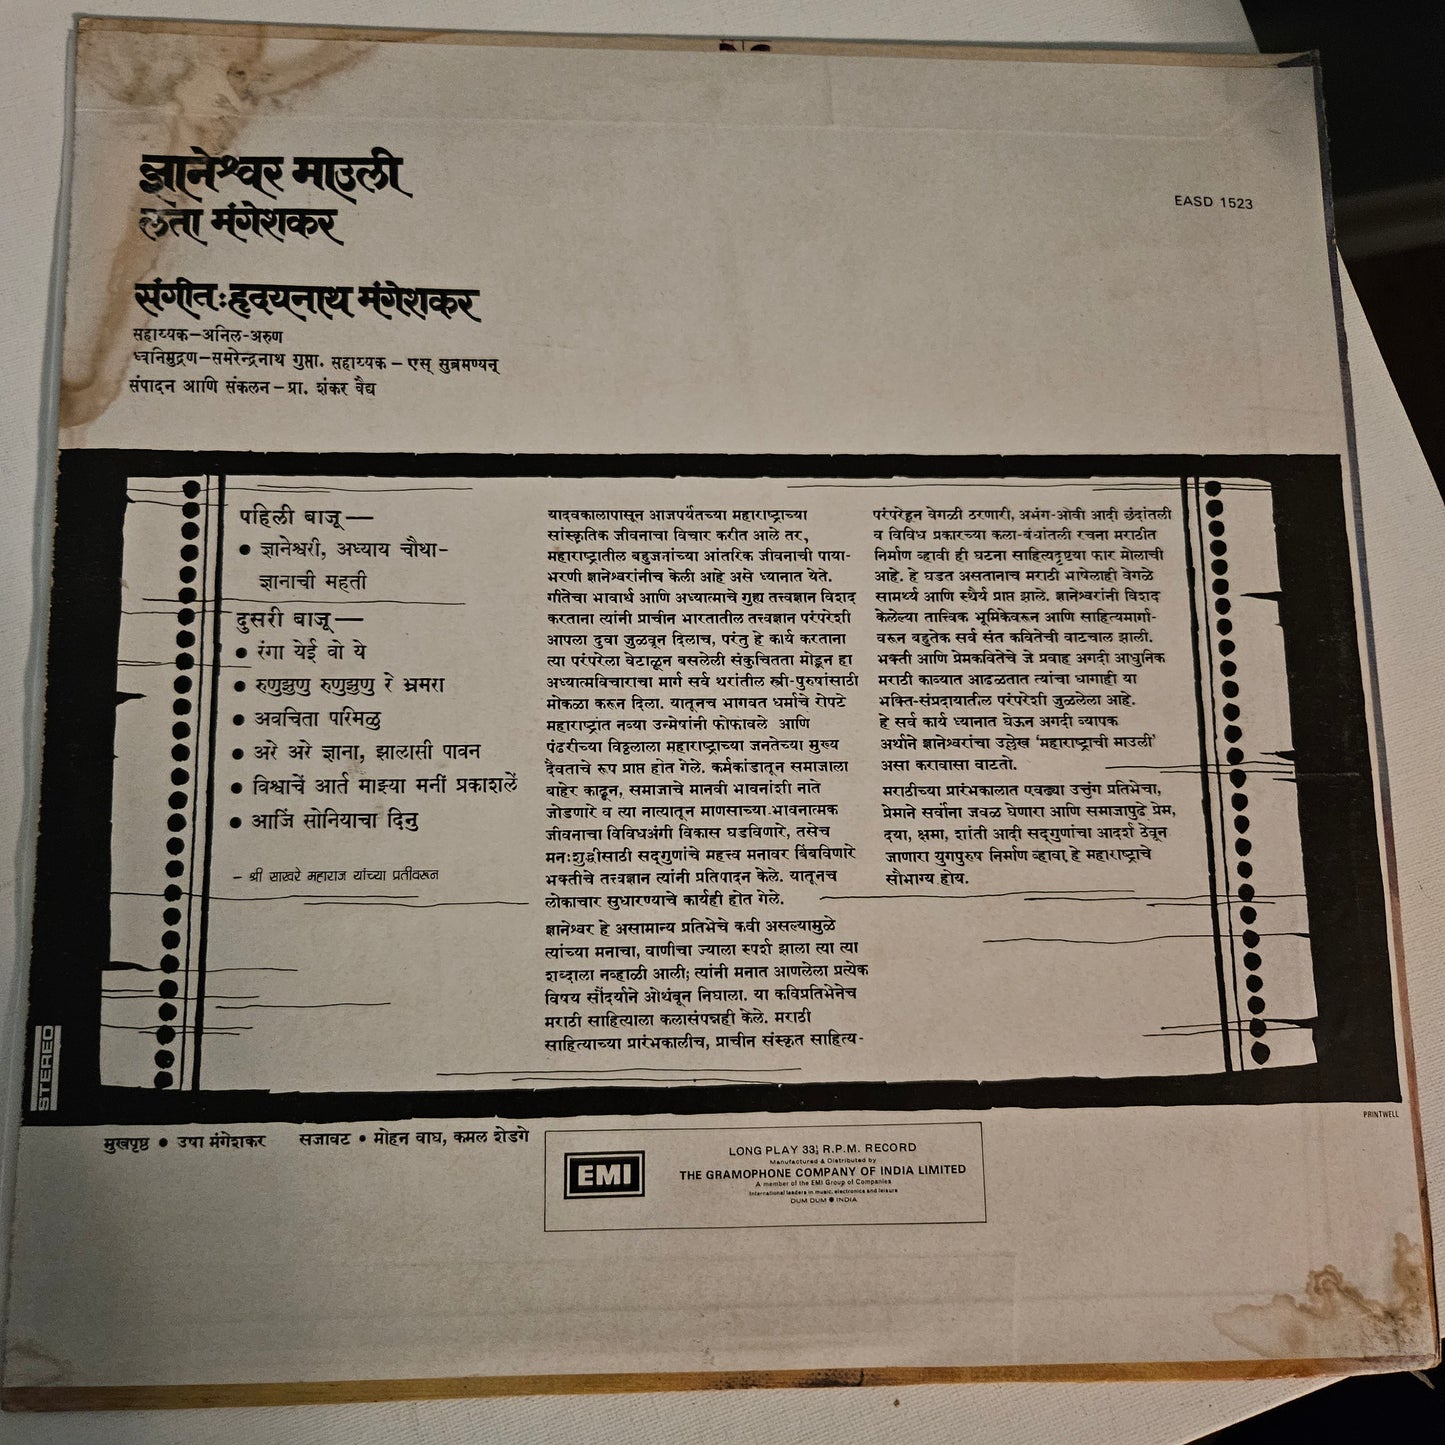 ज्ञानेश्वर माउली
लता मंगेशकर
EASD 1523
संगीत:हृदयनाथ मंगेशकर
सहाय्यक–अनिल-अरुण
ध्वनिमुद्रण–समरेन्द्रनाथ गुप्ता. सहाय्यक – एस् सुब्रमण्यन्
संपादन आणि संकलन – प्रा. शंकर वैद्य
पहिली बाजू —
● ज्ञानेश्वरी, अध्याय चौथा-
ज्ञानाची महती
दुसरी बाजू —
● रंगा येई वो ये
● रुणुझुणु रुणुझुणु रे भ्रमरा
● अवचिता परिमळु
● अरे अरे ज्ञाना, झालासी पावन
● विश्वाचें आर्त माझ्या मनीं प्रकाशलें
● आजिं सोनियाचा दिनु
– श्री साखरे महाराज यांच्या प्रतीवरून
यादवकालापासून आजपर्यंतच्या महाराष्ट्राच्या
सांस्कृतिक जीवनाचा विचार करीत आले तर,
महाराष्ट्रातील बहुजनांच्या आंतरिक जीवनाची पाया-
भरणी ज्ञानेश्वरांनीच केली आहे असे ध्यानात येते.
गीतेचा भावार्थ आणि अध्यात्माचे गुह्य तत्त्वज्ञान विशद
करताना त्यांनी प्राचीन भारतातील तत्त्वज्ञान परंपरेशी
आपला दुवा जुळवून दिलाच, परंतु हे कार्य करताना
त्या परंपरेला वेटाळून बसलेली संकुचितता मोडून हा
अध्यात्मविचाराचा मार्ग सर्व थरांतील स्त्री-पुरुषांसाठी
मोकळा करून दिला. यातूनच भागवत धर्माचे रोपटे
महाराष्ट्रांत नव्या उन्मेषांनी फोफावले आणि
पंढरीच्या विठ्ठलाला महाराष्ट्राच्या जनतेच्या मुख्य
दैवताचे रूप प्राप्त होत गेले. कर्मकांडातून समाजाला
बाहेर काढून, समाजाचे मानवी भावनांशी नाते
जोडणारे व त्या नात्यातून माणसाच्या भावनात्मक
जीवनाचा विविधअंगी विकास घडविणारे, तसेच
मनःशुद्धीसाठी सद्‌गुणांचे महत्त्व मनावर बिंबविणारे
भक्तीचे तत्त्वज्ञान त्यांनी प्रतिपादन केले. यातूनच
लोकाचार सुधारण्याचे कार्यही होत गेले.
ज्ञानेश्वर हे असामान्य प्रतिभेचे कवी असल्यामुळे
त्यांच्या मनाचा, वाणीचा ज्याला स्पर्श झाला त्या त्या
शब्दाला नव्हाळी आली; त्यांनी मनात आणलेला प्रत्येक
विषय सौंदर्याने ओथंबून निघाला. या कविप्रतिभेनेच
मराठी साहित्याला कलासंपन्नही केले. मराठी
साहित्याच्या प्रारंभकालीच, प्राचीन संस्कृत साहित्य-
परंपरेहून वेगळी ठरणारी, अभंग-ओवी आदी छंदांतली
व विविध प्रकारच्या कला-बंधांतली रचना मराठीत
निर्माण व्हावी ही घटना साहित्यदृष्ट्या फार मोलाची
आहे. हे घडत असतानाच मराठी भाषेलाही वेगळे
सामर्थ्य आणि स्थैर्य प्राप्त झाले. ज्ञानेश्वरांनी विशद
केलेल्या तात्त्विक भूमिकेवरून आणि साहित्यमार्गा-
वरून बहुतेक सर्व संत कवितेची वाटचाल झाली.
भक्ती आणि प्रेमकवितेचे जे प्रवाह अगदी आधुनिक
मराठी काव्यात आढळतात त्यांचा धागाही या
भक्ति-संप्रदायातील परंपरेशी जुळलेला आहे.
हे सर्व कार्य ध्यानात घेऊन अगदी व्यापक
अर्थाने ज्ञानेश्वरांचा उल्लेख ‘महाराष्ट्राची माउली’
असा करावासा वाटतो.
मराठीच्या प्रारंभकालात एवढ्या उत्तुंग प्रतिभेचा,
प्रेमाने सर्वांना जवळ घेणारा आणि समाजापुढे प्रेम,
दया, क्षमा, शांती आदी सद्‌गुणांचा आदर्श ठेवून
जाणारा युगपुरुष निर्माण व्हावा हे महाराष्ट्राचे
सौभाग्य होय.
STEREO
PRINTWELL
मुखपृष्ठ ● उषा मंगेशकर सजावट ● मोहन वाघ, कमल शेडगे
EMI
LONG PLAY 33⅓ R.P.M. RECORD
Manufactured & Distributed by
THE GRAMOPHONE COMPANY OF INDIA LIMITED
A member of the EMI Group of Companies
International leaders in music, electronics and leisure
DUM DUM ● INDIA